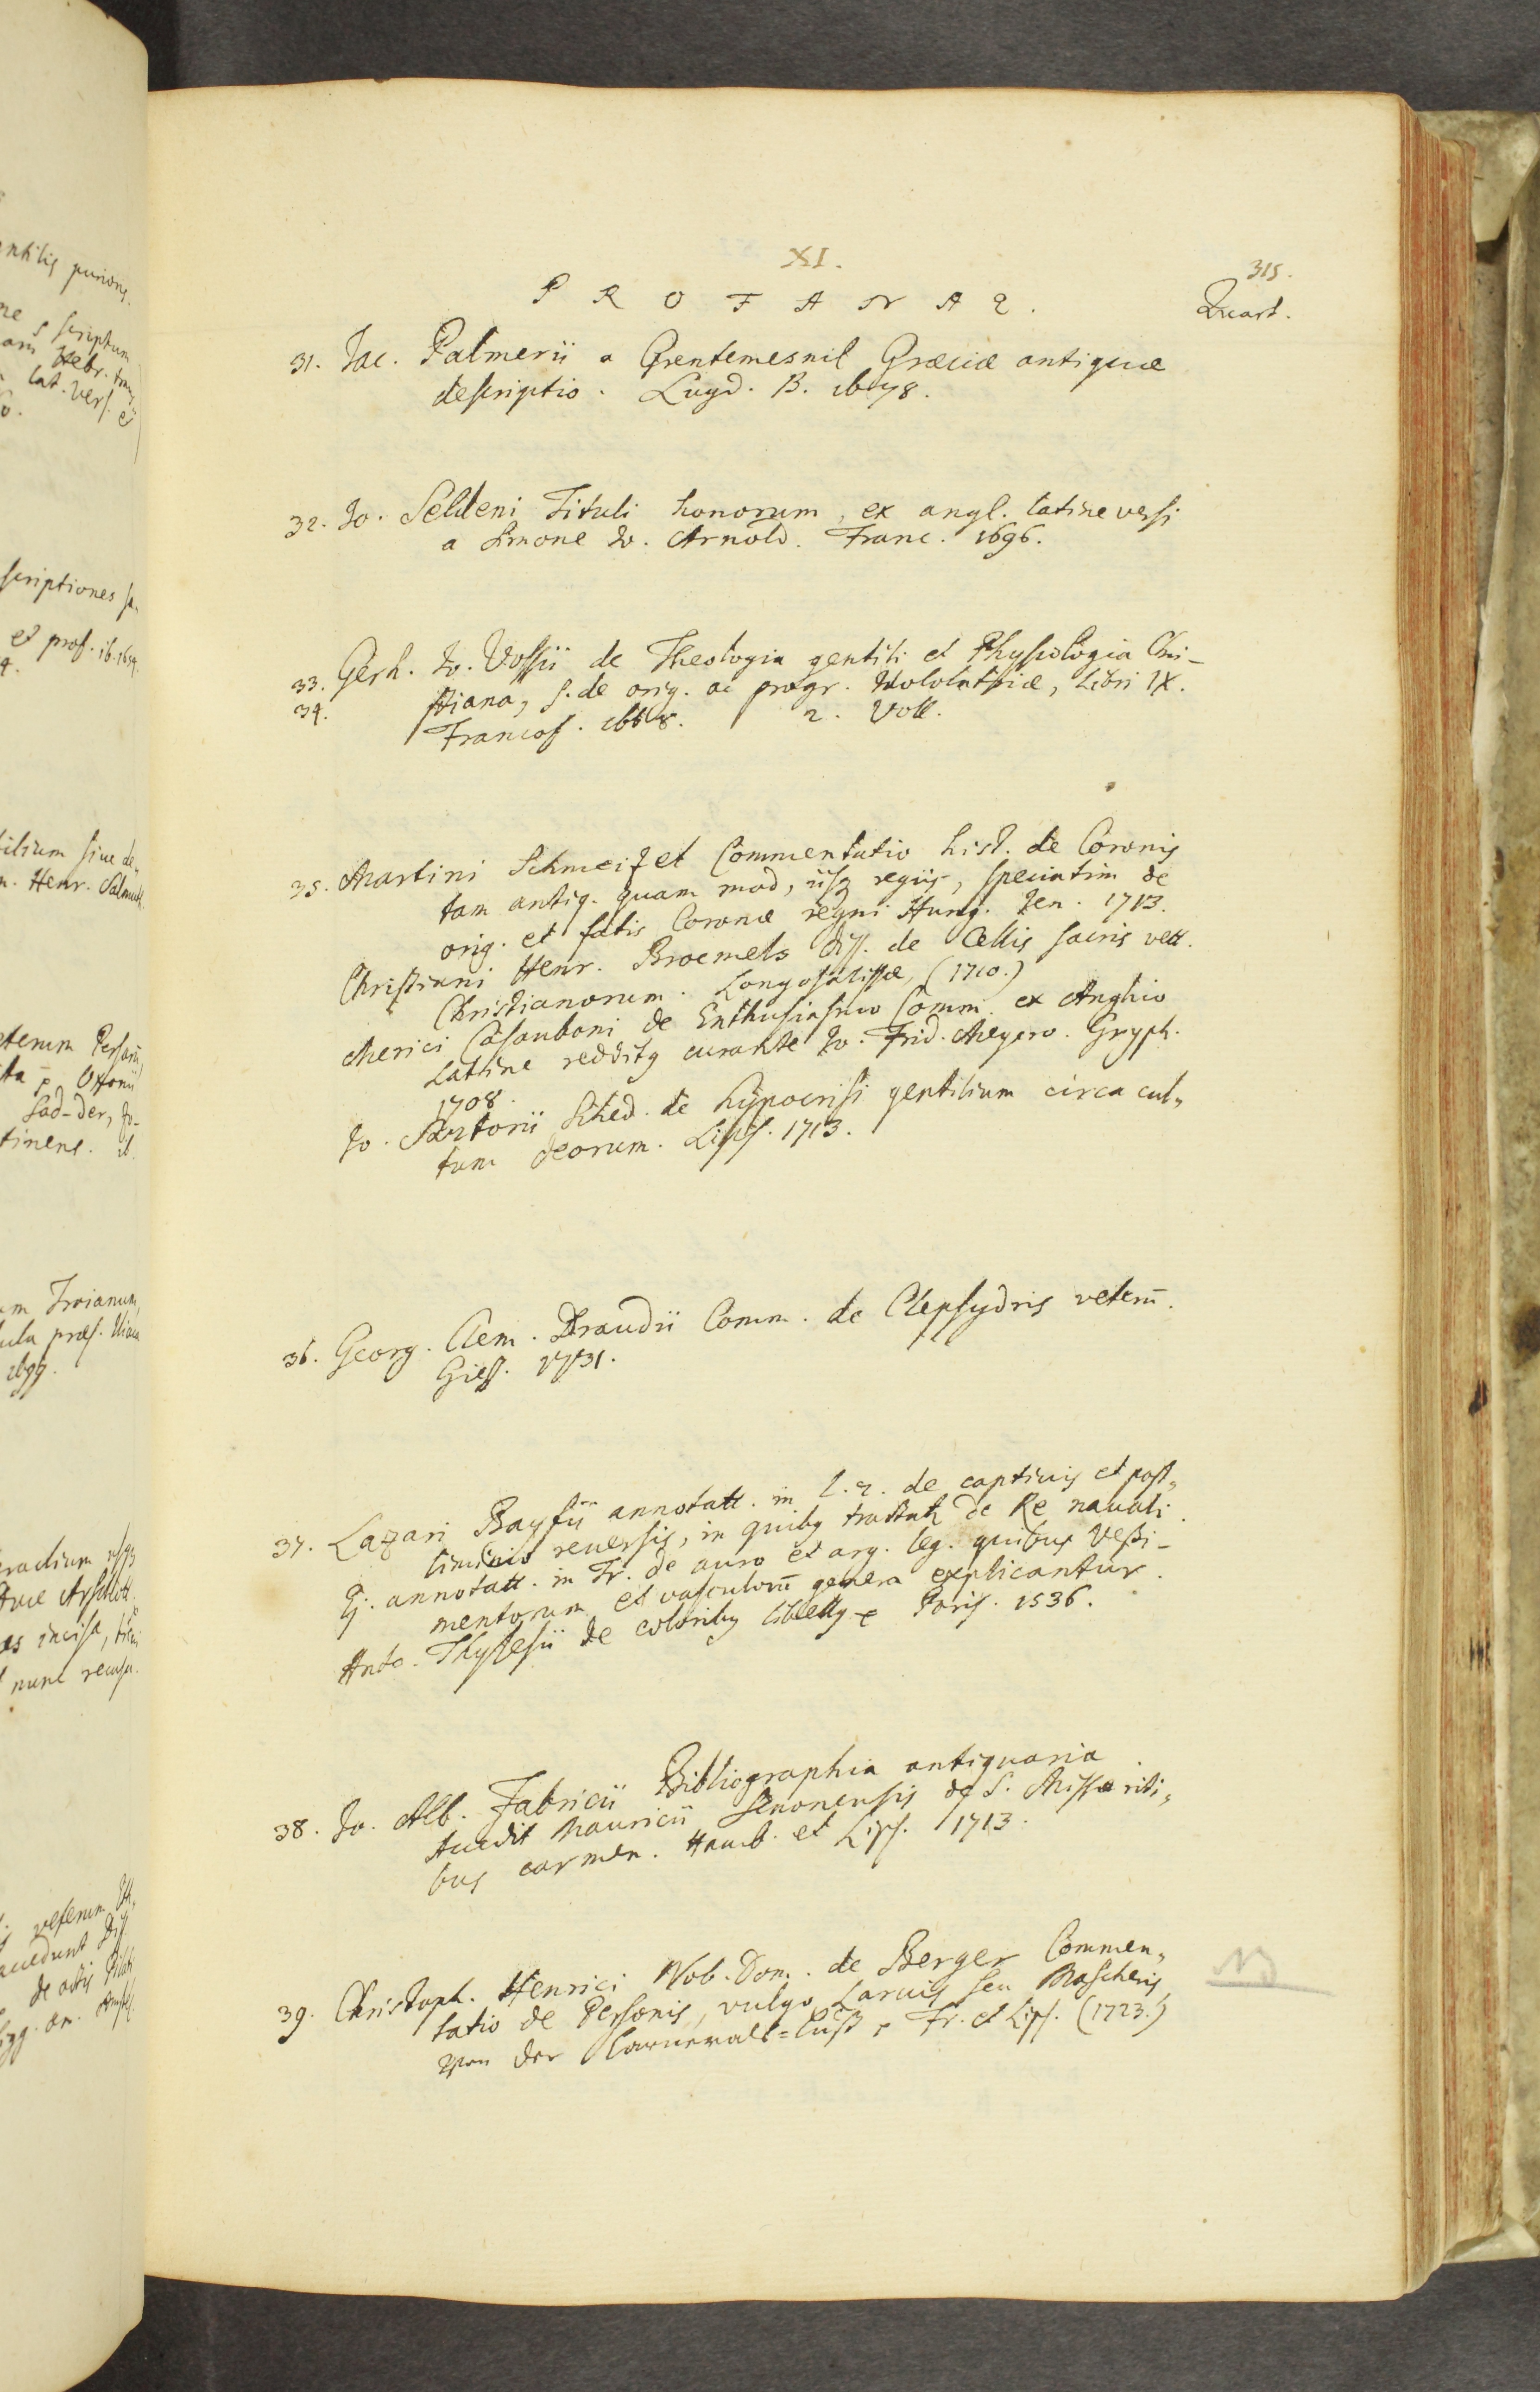 XI.
315.
PROFANAE.
Quart.
31. Jac. Palmerii a Grentemesnil Græciæ antiquæ
descriptio. Lugd. B. 1678.
32. Jo. Seldeni Tituli honorum, ex angl. latine versi
a Simone Jo. Arnold. Franc. 1696.
33. Gerh. Jo. Vossii de Theologia gentili et Physiologia Chri-
34. stiana, s. de orig. ac progr. Idololatriæ, Libri IX.
Francof. 1668. 2. Voll.
35. Martini Schmeizel Commentatio hist. de Coronis
tam antiq. quam mod, iisq regiis, speciatim de
orig. et fatis Coronæ regni Hung. Jen. 1713.
Christiani Henr. Broemels diss. de Cellis sacris vett.
Christianorum. Longosalissæ, (1710.)
Merici Casauboni de Enthusiasmo Comm. ex Anglico
Latine reddita curante Jo. Frid. Mayero. Gryph.
1708.
Jo. Sartorii Sched. de hypocrisi gentilium circa cul„
tum deorum. Lips. 1713.
36. Georg. Clem. Draudii Comm. de Clepsydris veterū.
Giess. 1731.
37. Lazari Bayfii annotatt. in l. 2. de captivis et post„
liminio reversis, in quibq tractatr de Re navali.
Ej. annotatt. in Tr. de auro et arg. leg. quibus Vesti-
mentorum et vasculorū genera explicantur.
Anto. Thylesii de coloribq libellq Paris. 1536.
38. Jo. Alb. Fabricii Bibliographia antiquaria
Accedit Mauricii Senonensis de S. Missæ riti„
bus carmen. Hamb. et Lips. 1713.
39. Christoph. Henrici Nob. Dom. de Berger Commen„
tatio de Personis, vulgo Larvis seu Mascheris,
Von der Carnevals=Lust Fr. et Lips. (1723.)
NB